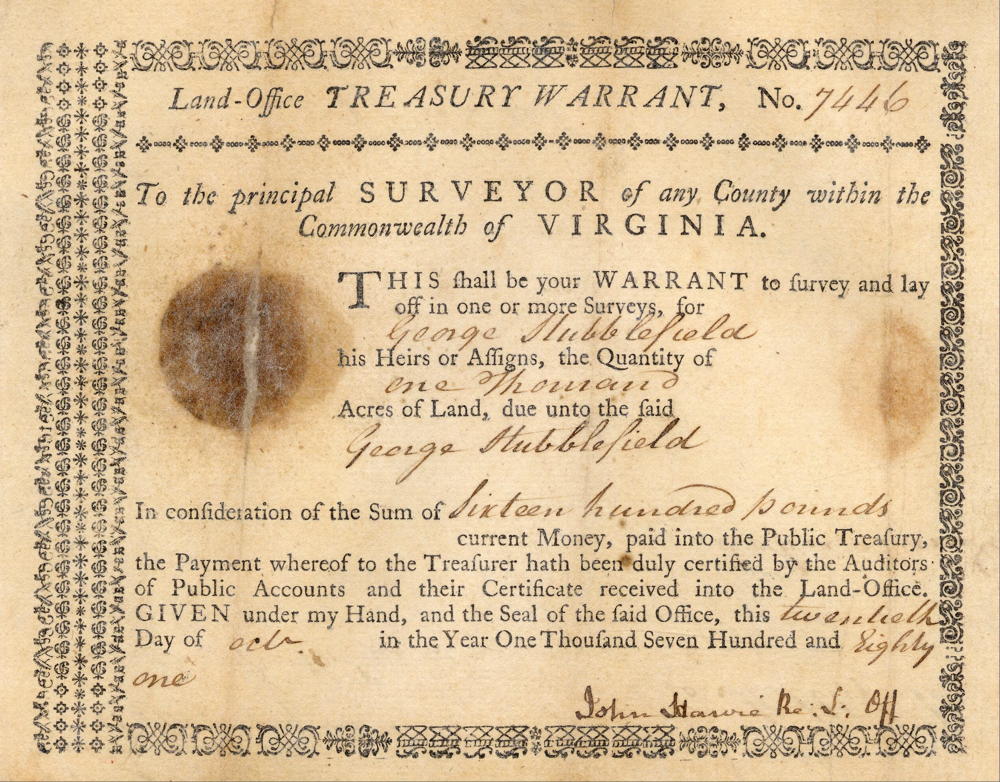 Land-Office TREASURY WARRANT, No. 7446
To the principal SURVEYOR of any County within the
Commonwealth of VIRGINIA.
THIS ſhall be your WARRANT to ſurvey and lay
off in one or more Surveys, for
George Stubblefield
his Heirs or Aſſigns, the Quantity of
one Thousand
Acres of Land, due unto the ſaid
George Stubblefield
In conſideration of the Sum of Sixteen hundred pounds
current Money, paid into the Public Treaſury,
the Payment whereof to the Treaſurer hath been duly certified by the Auditors
of Public Accounts and their Certificate received into the Land-Office.
GIVEN under my Hand, and the Seal of the ſaid Office, this twentieth
Day of octr. in the Year One Thouſand Seven Hundred and Eighty
one
John Harvie Re. L. Off